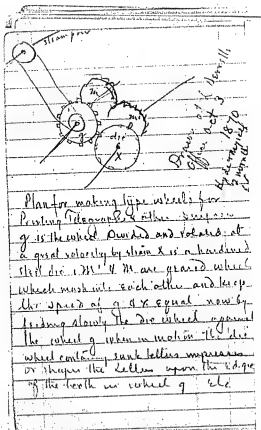 steam power
m
m'
g
die
X
1870
Plan for making type wheels for
Printing Telegraphs & other purposes
g is the wheel Divided and rotated at
a great velocity by steam X is a hardened
steel die. M' & M are geared wheels
which mesh into Each other and keep
the speed of g & X Equal now by
feeding slowly the die wheel against
the wheel g when in motion the die
wheel containing sunk letters impresses
or shapes the letters upon the Edge
of the teeth in wheel g